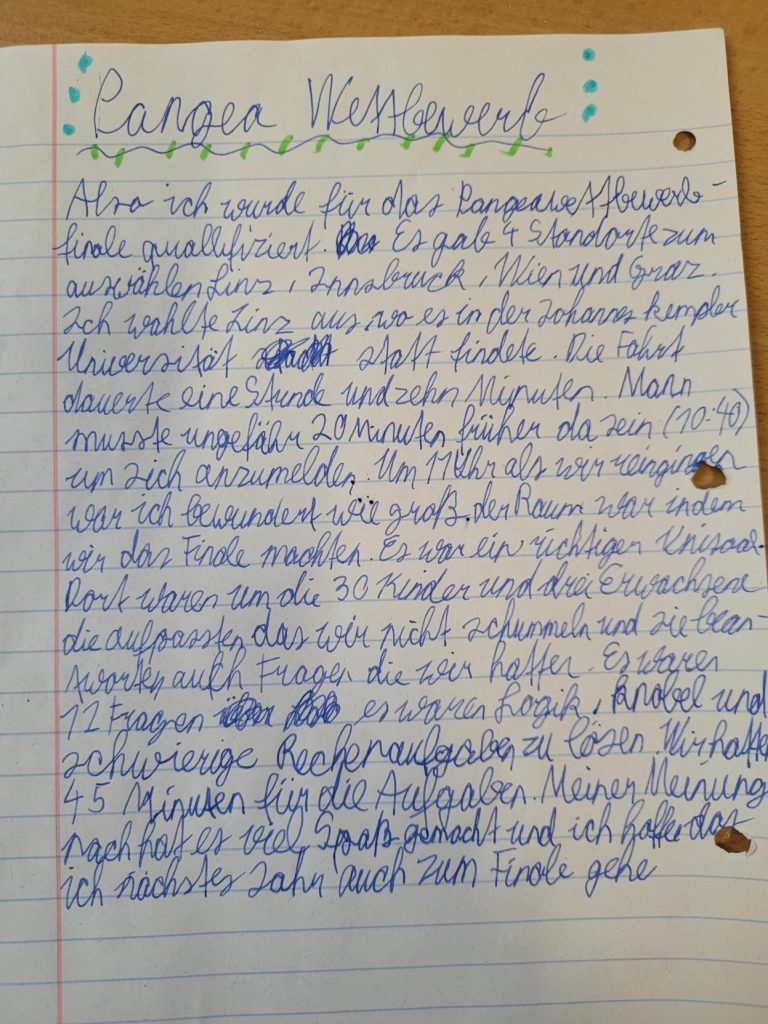 Pangea Wettbewerb
Also ich wurde für das Pangeawettbewerb-
finale quallifiziert. Es gab 4 Standorte zum
auswählen Linz, Innsbruck, Wien und Graz.
Ich wählte Linz aus, wo es in der Johannes kempler
Universität statt findete. Die Fahrt
dauerte eine Stunde und zehn Minuten. Mann
musste ungefähr 20 Minuten früher da sein (10:40)
um sich anzumelden. Um 11 Uhr als wir reingingen
war ich bewundert wie groß der Raum war indem
wir das Finale machten. Es war ein richtiger Unisaal.
Dort waren um die 30 Kinder und drei Erwachsene
die aufpassten das wir nicht schummeln und sie bean-
tworten auch Fragen die wir hatten. Es waren
12 Fragen es waren Logik, Knobel und
schwierige Rechenaufgaben zu lösen. Wir hatten
45 Minuten für die Aufgaben. Meiner Meinung
nach hat es viel Spaß gemacht und ich hoffe das
ich nächstes Jahr auch zum Finale gehe